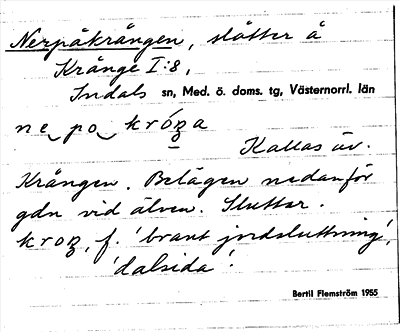 Nerpåkrången, slåtter å
Krånge I:8,
Indals sn, Med. ö. doms. tg, Västernorrl. län
ne po króꞑa
Kallas äv.
Krången. Belägen nedanför
gdn vid älven. Sluttar.
kroꞑ, f. 'brant jordsluttning',
'dalsida'.
Bertil Flemström 1955